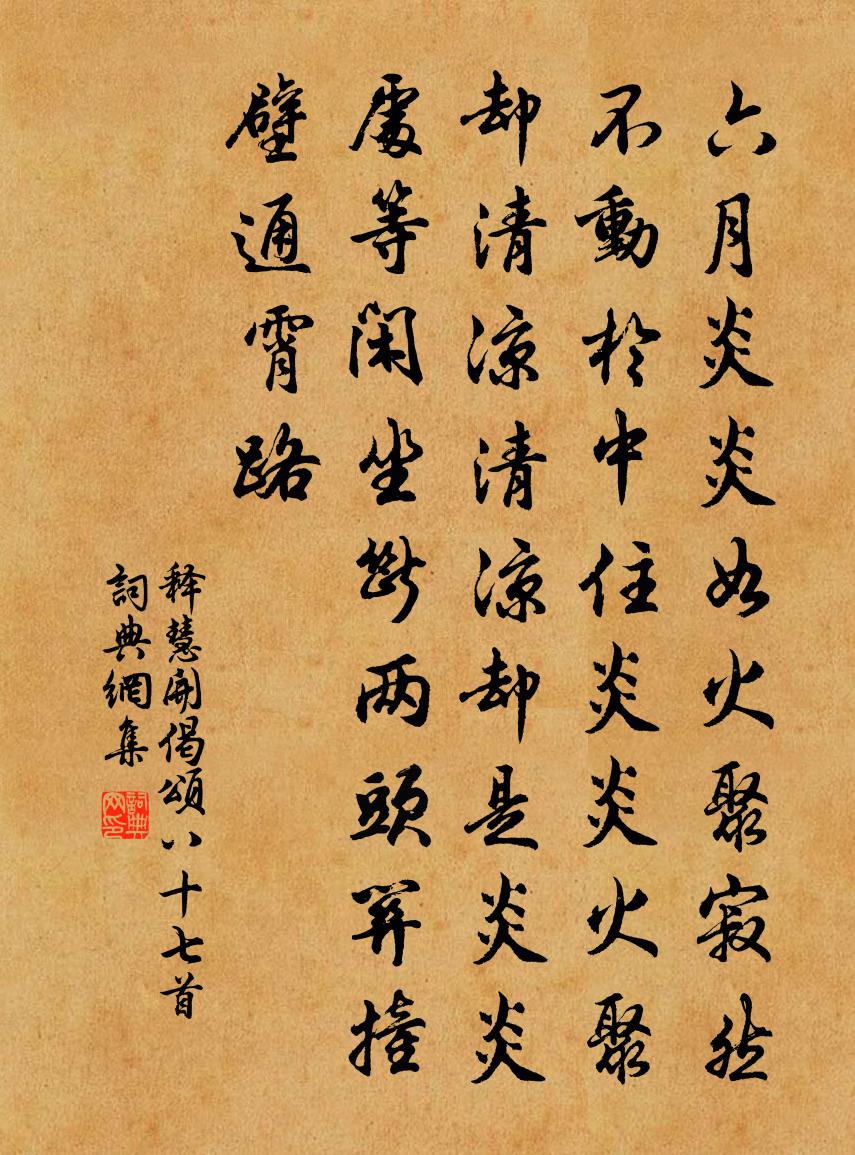 六月炎炎如火聚寂然
不動於中住炎炎火聚
却清涼清涼却是炎炎
處等閑坐斷两頭開撞
壁通霄路
释慧開偈頌八十七首
詞典網集
詞典网印